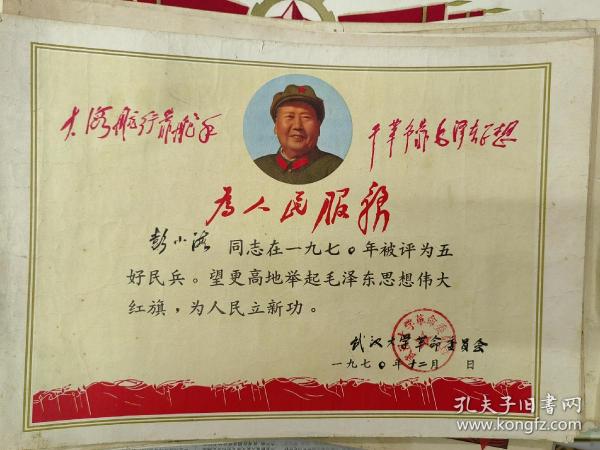 大海航行靠舵手
干革命靠毛泽东思想
为人民服务
彭小海 同志在一九七〇年被评为五
好民兵。望更高地举起毛泽东思想伟大
红旗，为人民立新功。
武汉大学革命委员会
一九七〇年十二月 日
孔夫子旧书网
www.kongfz.com